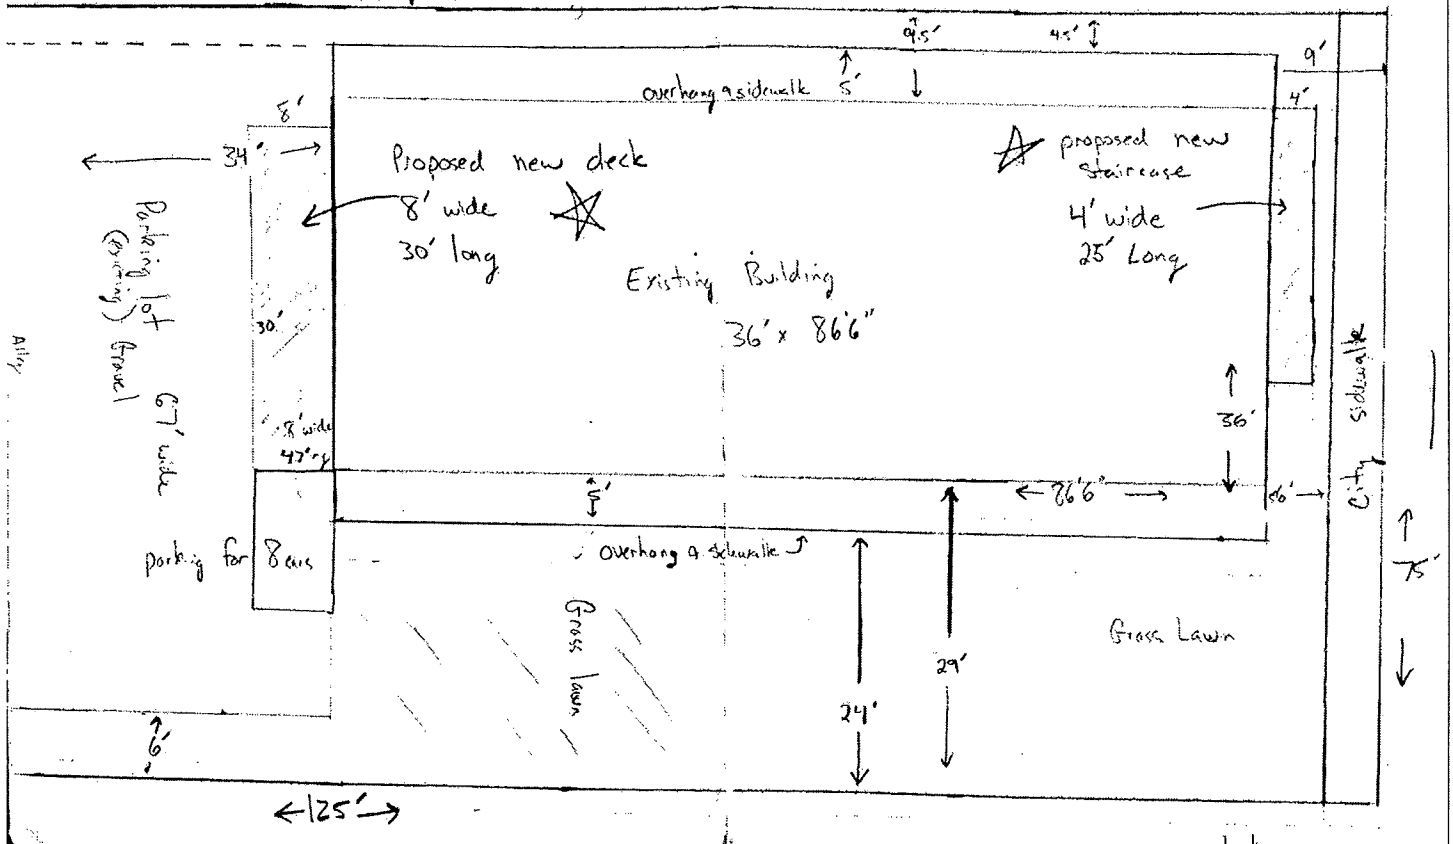 9.5'
4.5'
9'
overhang & sidewalk
5'
4'
8'
34'
Proposed new deck
8' wide
30' long
proposed new
staircase
4' wide
25' Long
Existing Building
36' x 86'6"
Parking lot
(existing) Gravel
67' wide
Alley
30'
8' wide
36'
City sidewalk
86'6"
6'
75'
parking for 8 cars
overhang & sidewalk
Grass lawn
Grass Lawn
29'
24'
6'
125'